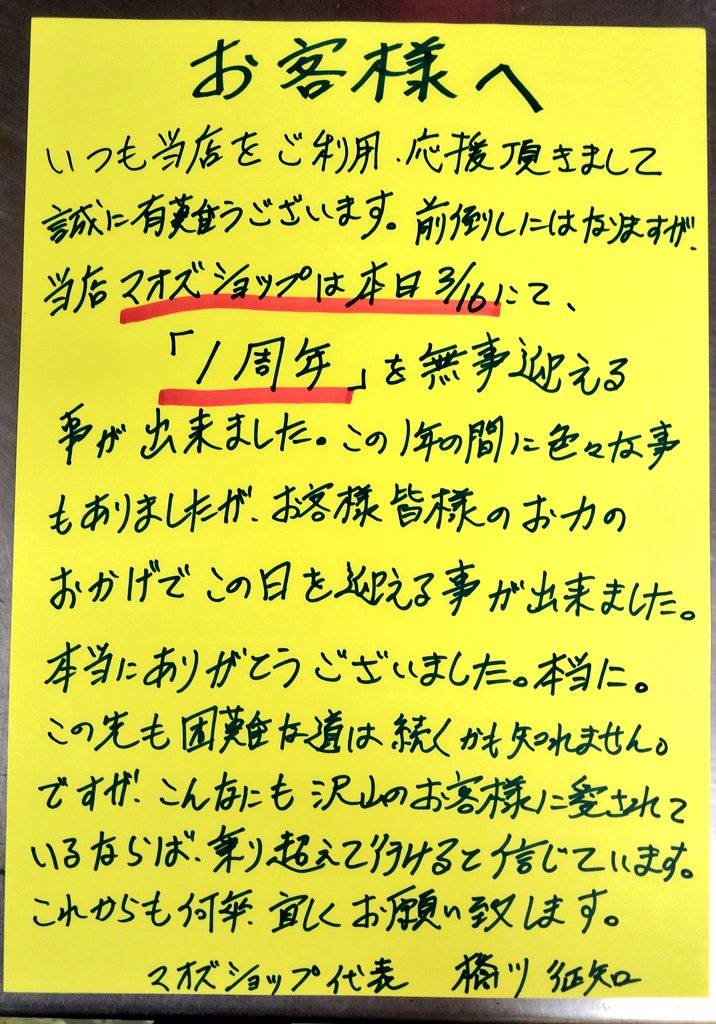 お客様へ
いつも当店をご利用、応援頂きまして
誠に有難うございます。前倒しにはなりますが、
当店マオズショップは本日3/16にて、
「1周年」を無事迎える
事が出来ました。この1年の間に色々な事
もありましたが、お客様皆様のお力の
おかげでこの日を迎える事が出来ました。
本当にありがとうございました。本当に。
この先も困難な道は続くかも知れません。
ですが、こんなにも沢山のお客様に愛されて
いるならば、乗り超えて行けると信じています。
これからも何卒、宜しくお願い致します。
マオズショップ代表 川 征知